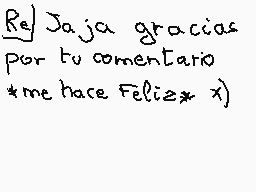 Re/ Jaja gracias
por tu comentario
*me hace Feliz* x)